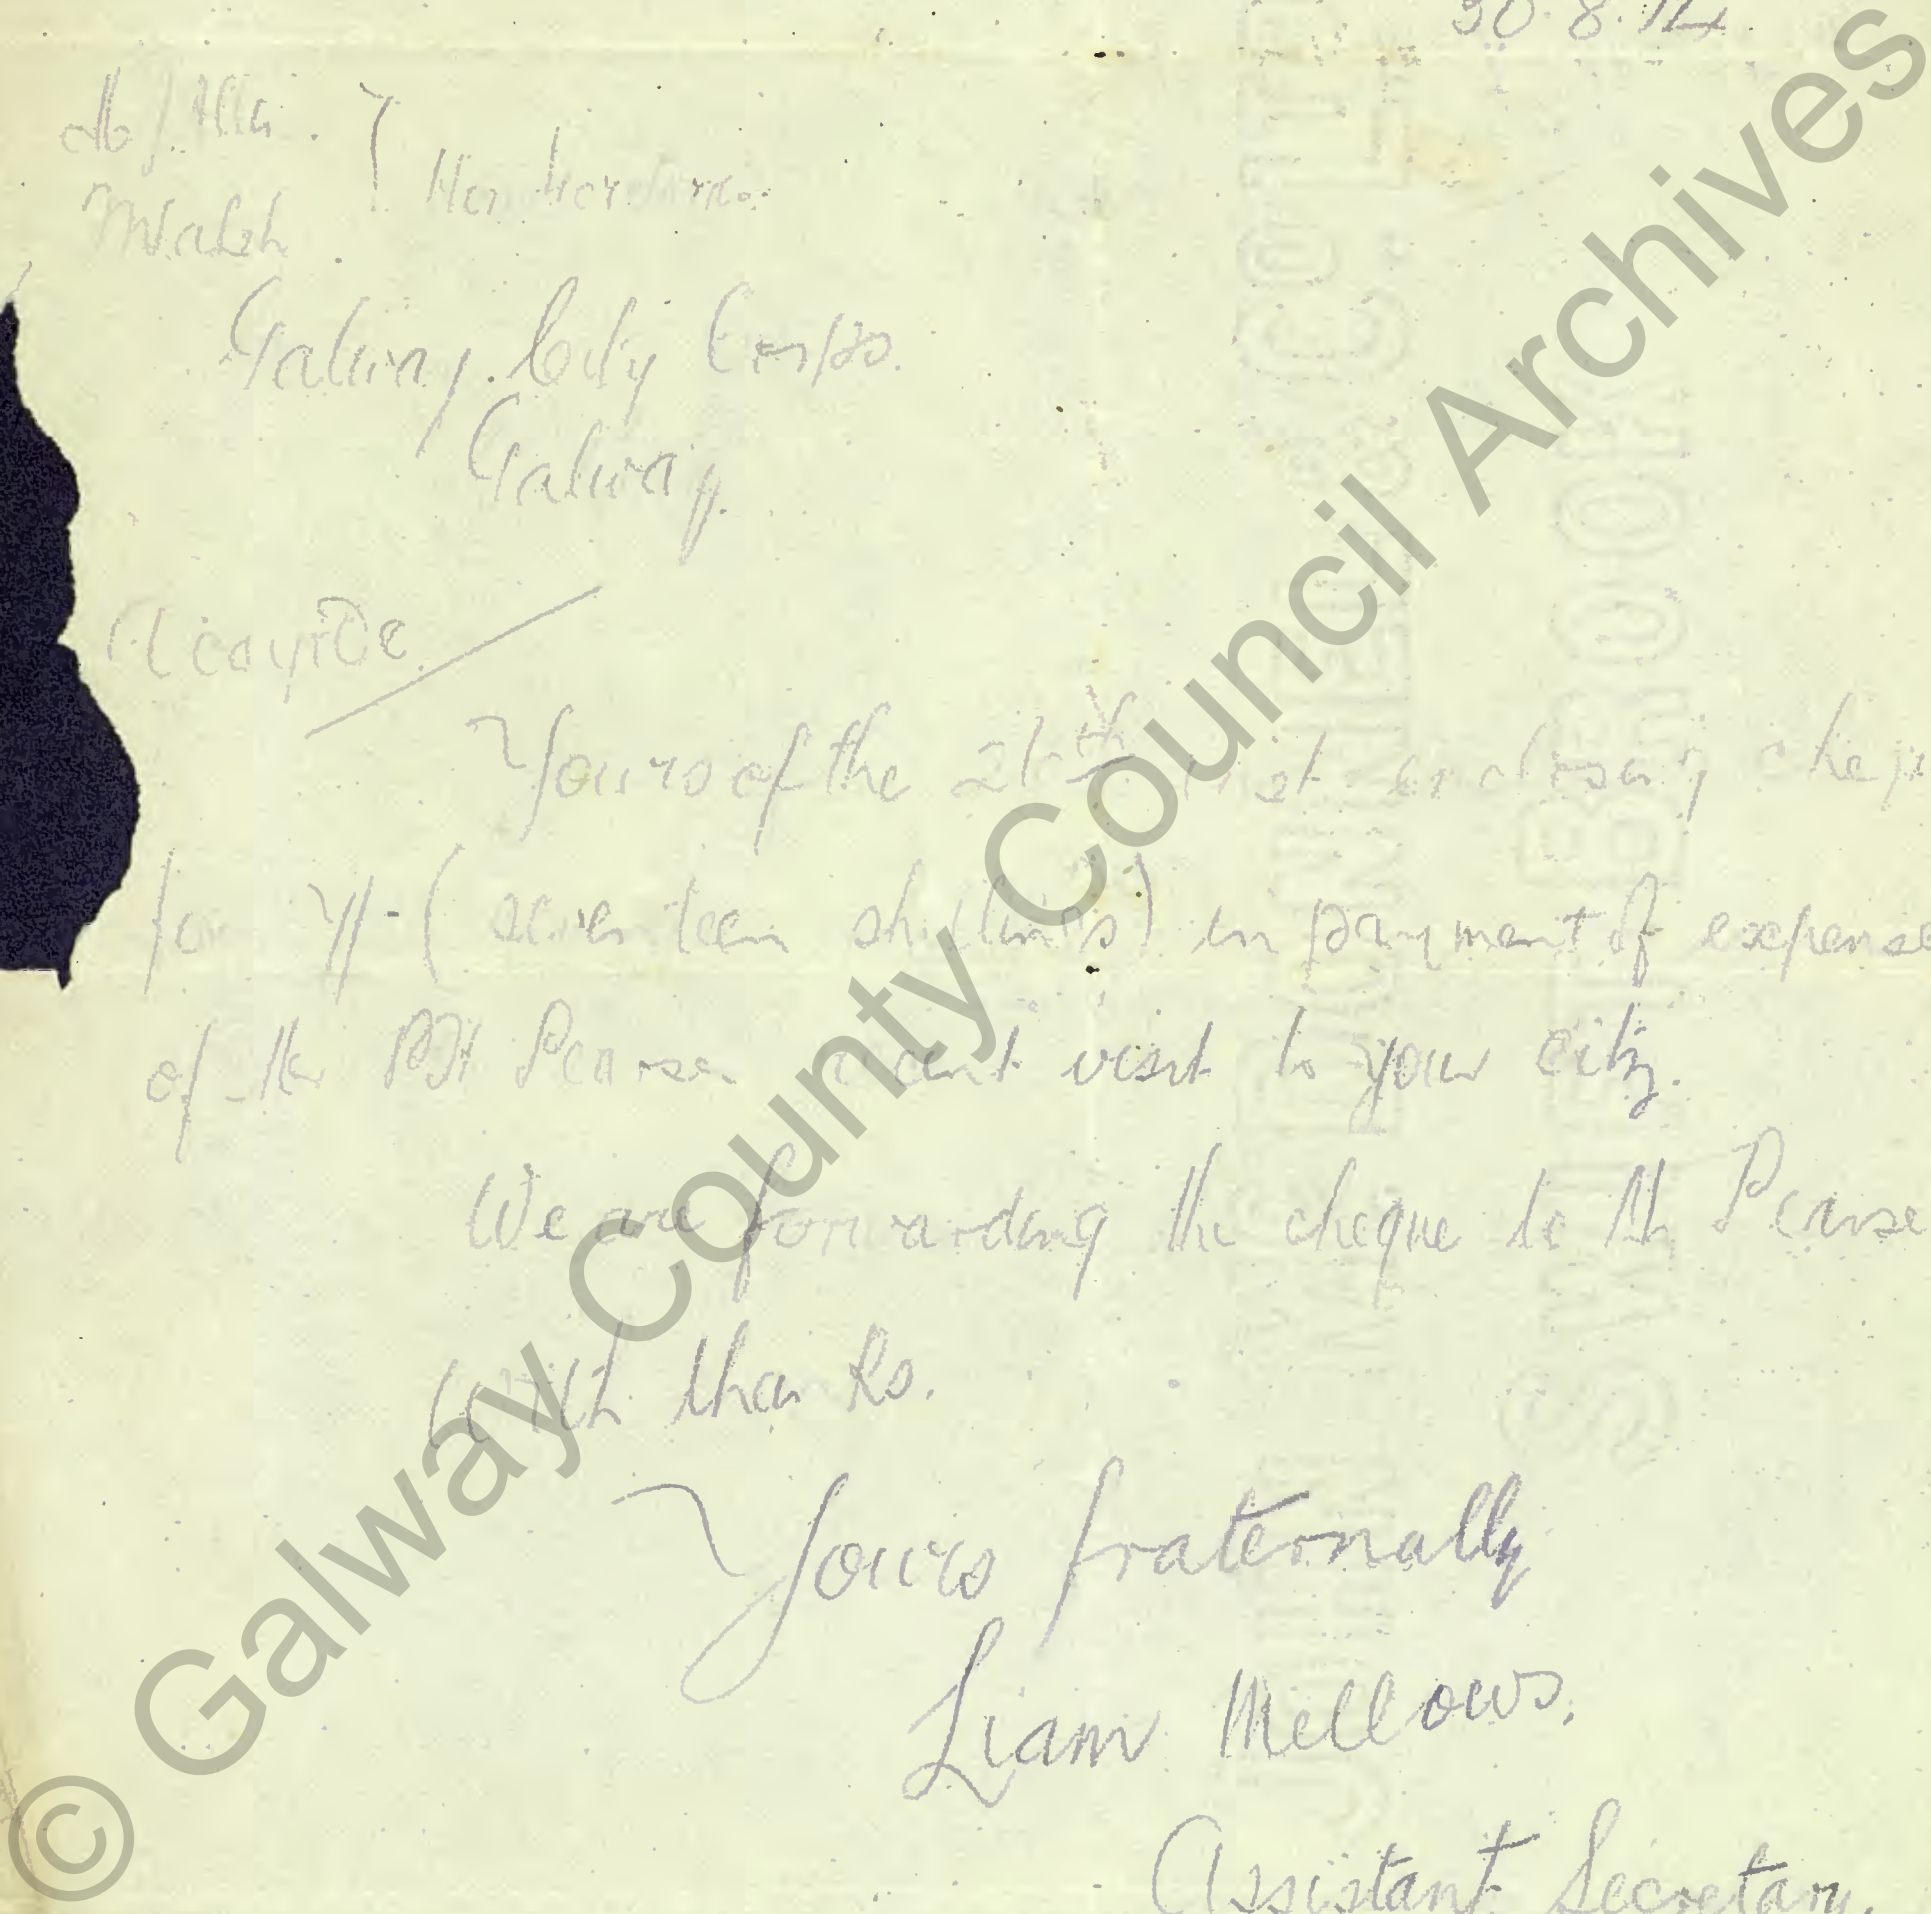 30.8.14.
Walsh
Galway City Corps.
Galway.
A ċayrde
Yours of the 26th inst enclosing cheq
for 17/- (seventeen shillings) in payment of expense
of Mr PH Pearse recent visit to your city.
We are forwarding the cheque to Mr Pearse
With thanks.
Yours fraternally
Liam Mellows.
Assistant Secretary.
© Galway County Council Archives